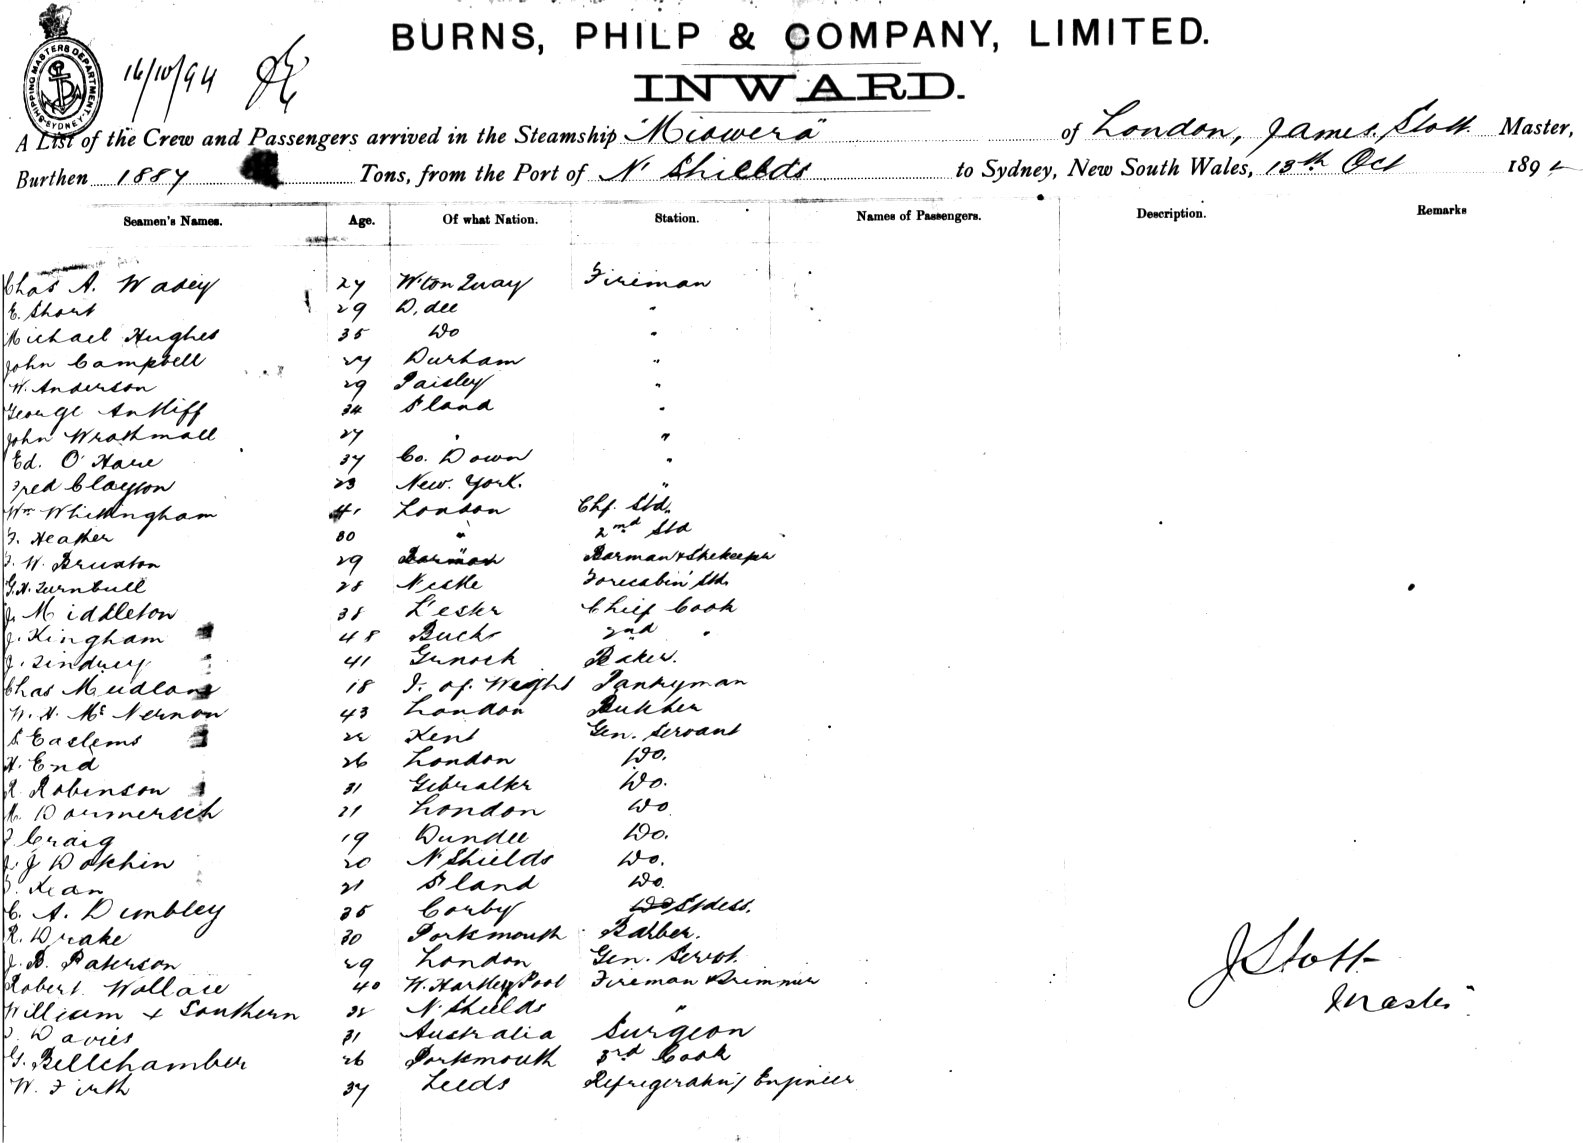 BURNS, PHILP & COMPANY, LIMITED.
SHIPPING MASTERS DEPARTMENT SYDNEY
16/10/94
INWARD.
A List of the Crew and Passengers arrived in the Steamship "Miowera" of London, James Stott Master,
Burthen 1887 Tons, from the Port of N Shields to Sydney, New South Wales, 13th Oct 189
Seamen's Names. Age. Of what Nation. Station. Names of Passengers. Description. Remarks
Chas A. Wadey 27 W'ton Quay Fireman
E. Short 29 D.dee "
Michael Hughes 35 Do "
John Campbell 27 Durham "
W. Anderson 29 Paisley "
George Antliff 34 S'land "
John Wrathmall 27 " "
Ed. O'Hare 37 Co. Down "
Fred Clayton 23 New York. "
Wm Whittingham 41 London Chf. Std.
F. Heather 30 " 2nd Std
W. Bruxton 29 " Barman & Stkeeper
G.H. Turnbull 28 Forecabin Std.
J. Middleton 38 L'ester Chief Cook
J. Kingham 48 Bucks 2nd "
J. 41 Grnock Baker.
Chas Mudlong 18 I. of Weight Pantryman
W. H. Mc Nernon 43 London Butcher
S Eastems Kent Gen. Servant
H. End 26 London Do.
R. Robinson 31 Gibralter Do.
Dormersch 21 London Do
Craig 19 Dundee Do.
J. J Dotchin 20 N Shields Do.
Kean 21 S'land Do.
C. A. Dumbley 35 Corby Do Stdess.
R. Drake 30 Portsmouth Barber.
J. B. Paterson 29 London Gen. Servt.
Robert Wallace 40 W. Hartley Pool Fireman & Trimmer
William + Southern N. Shields "
Davies 31 Australia Surgeon
G. Bellchamber 26 Portsmouth 3rd Cook
W. Firth 37 Leeds Refrigerating Engineer
J Stott
Master